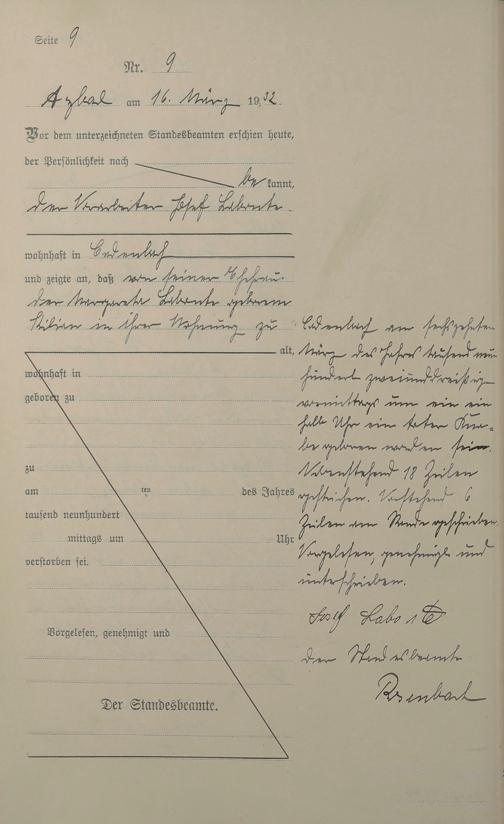 Seite 9
Nr. 9
Arzbach am 16. März 1932.
Vor dem unterzeichneten Standesbeamten erschien heute,
der Persönlichkeit nach
be kannt,
der Vorarbeiter Josef Labonte
wohnhaft in Cadenbach
und zeigte an, daß von seiner Ehefrau
der Margareta Labonte geborene
Kilian in ihrer Wohnung zu
alt,
wohnhaft in
geboren zu
zu
am ten des Jahres
tausend neunhundert
mittags um Uhr
verstorben sei.
Vorgelesen, genehmigt und
Der Standesbeamte.
Cadenbach am sechszehnten
März des Jahres tausend neun
hundert zweiunddreißig
vormittags um ein ein
halb Uhr ein toter Kna-
be geboren worden sei.
Nebenstehend 18 Zeilen
gestrichen. Vorstehend 6
Zeilen am Rande geschrieben.
Vorgelesen, genehmigt und
unterschrieben.
Josef
der Standesbeamte